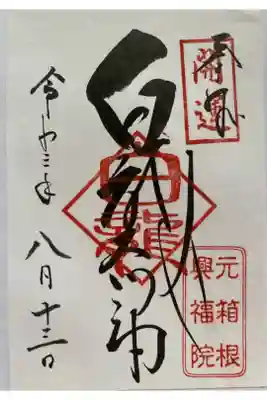 奉拝
開運
白龍
元箱根
興福院
令和三年 八月十三日